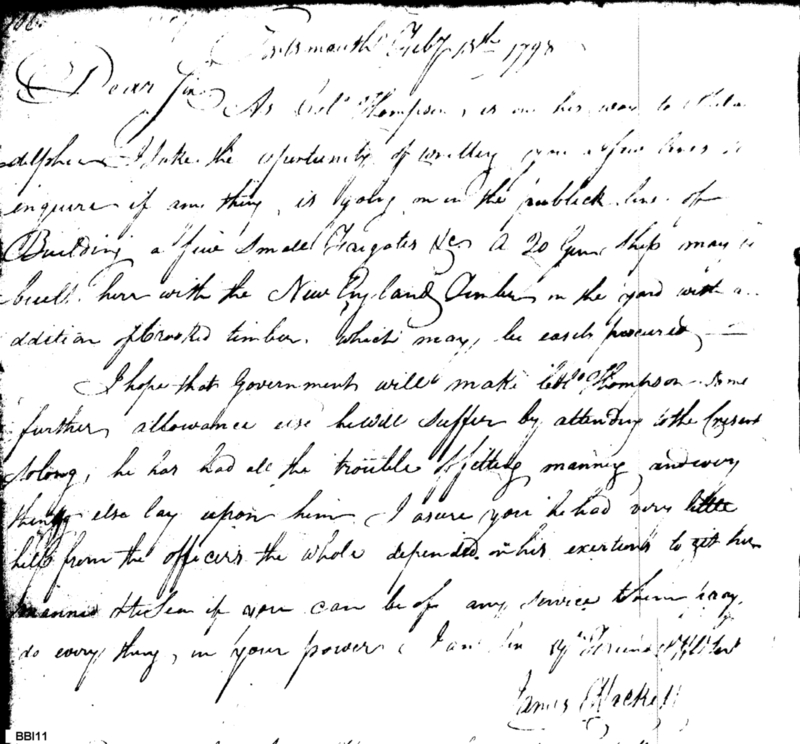 Portsmouth Feby 15th 1798
Dear Sir As Colo Thompson, is on his way to Phila
delphia I take the oportunity of writting you a few lines to
enquire if any thing, is going on in the publick line of
Building a few Small Fregates &c A 20 Gun Ship may be
built here with the New England timber in the yard with a
ddition of Crooked timber. which may, be easily procured,
I hope that Government will make Colo Thompson some
further, allowance else he will Suffer by attending to the Cresent
So long, he has had all the trouble of fitting, manning, and every
thing else lay upon him I asure you he had very little
help from the officers the whole depended on his exertions to get her
manned &c Sea if you can be of any service to him pray,
do every thing, in your power I am Sir yr
James Hackett
BBI11